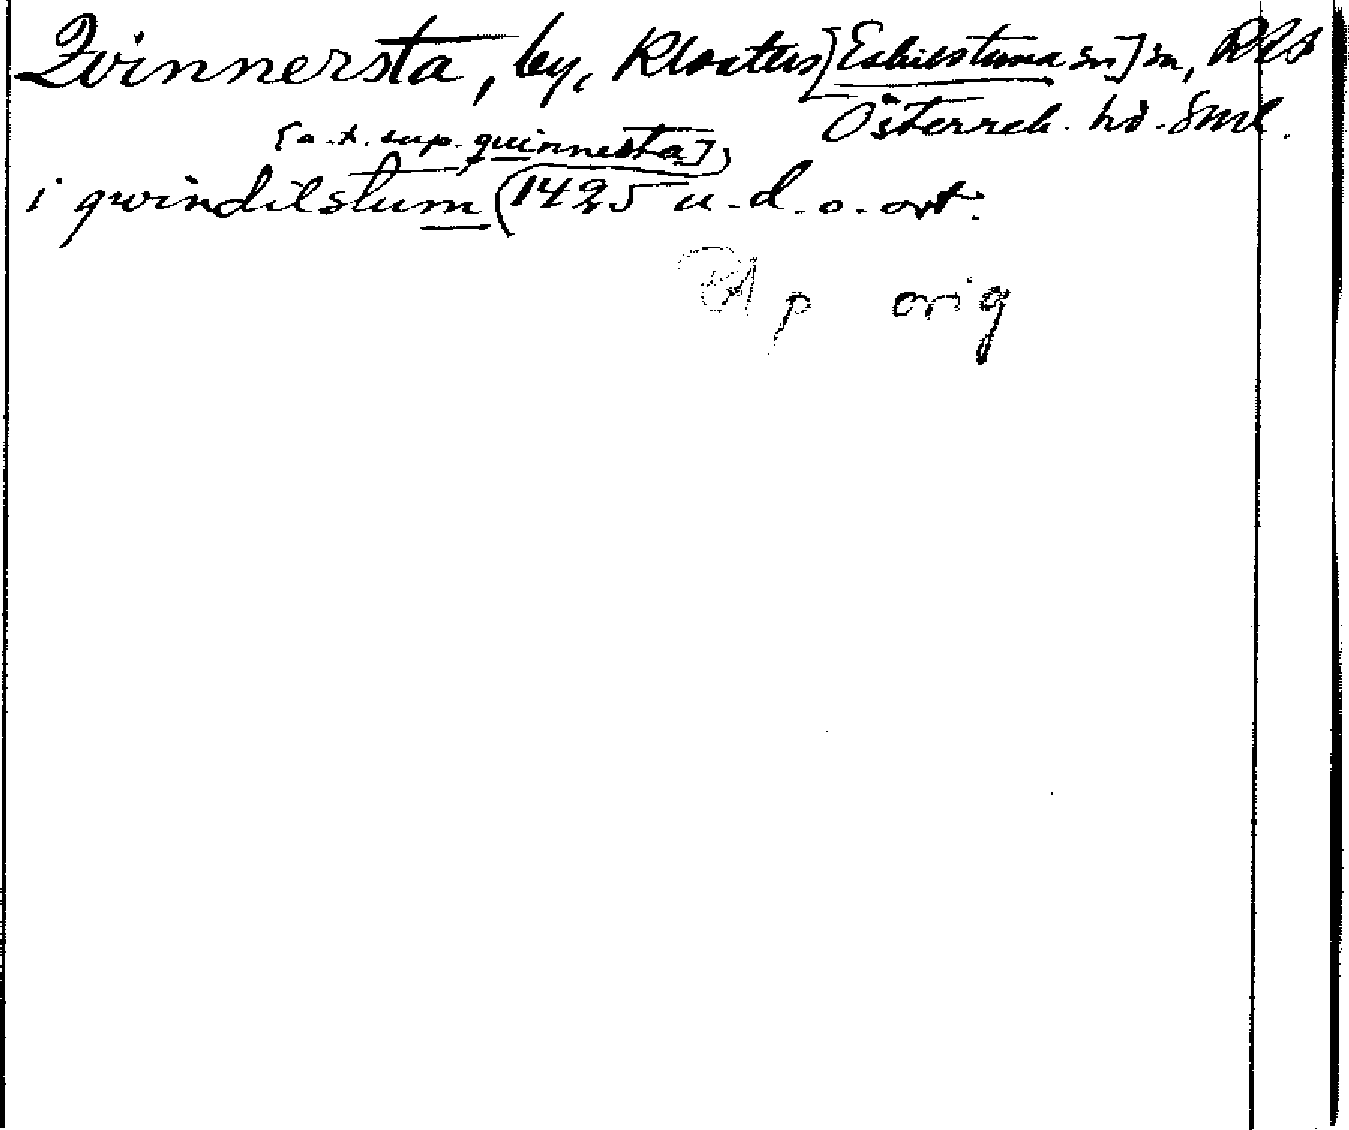 Qvinnersta, by, Klosters [Eskilstuna sn] sn,
Österrek. hd. Sml.
[a. t. sup. quinnesta],
i qvindilstum (1425 u. d. o. ort.
p orig